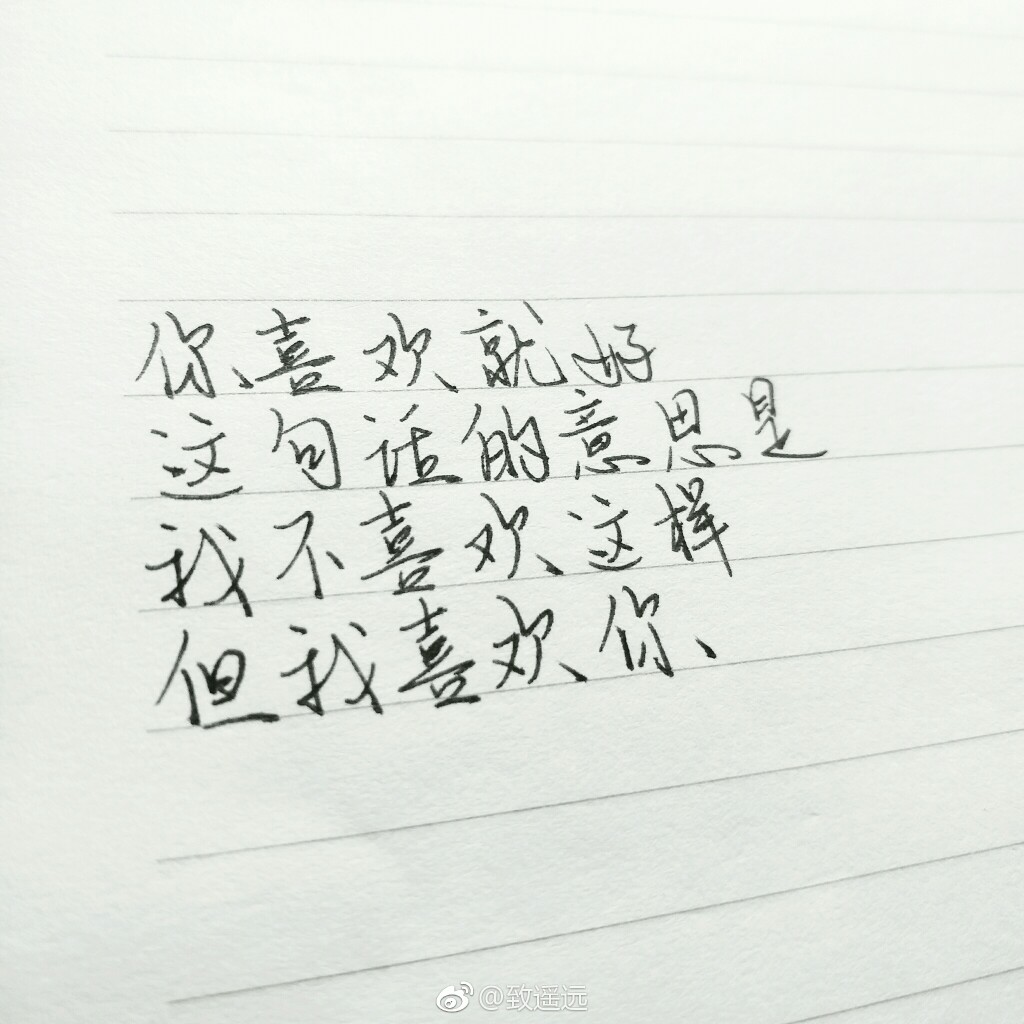 你喜欢就好
这句话的意思是
我不喜欢这样
但我喜欢你、
@致遥远